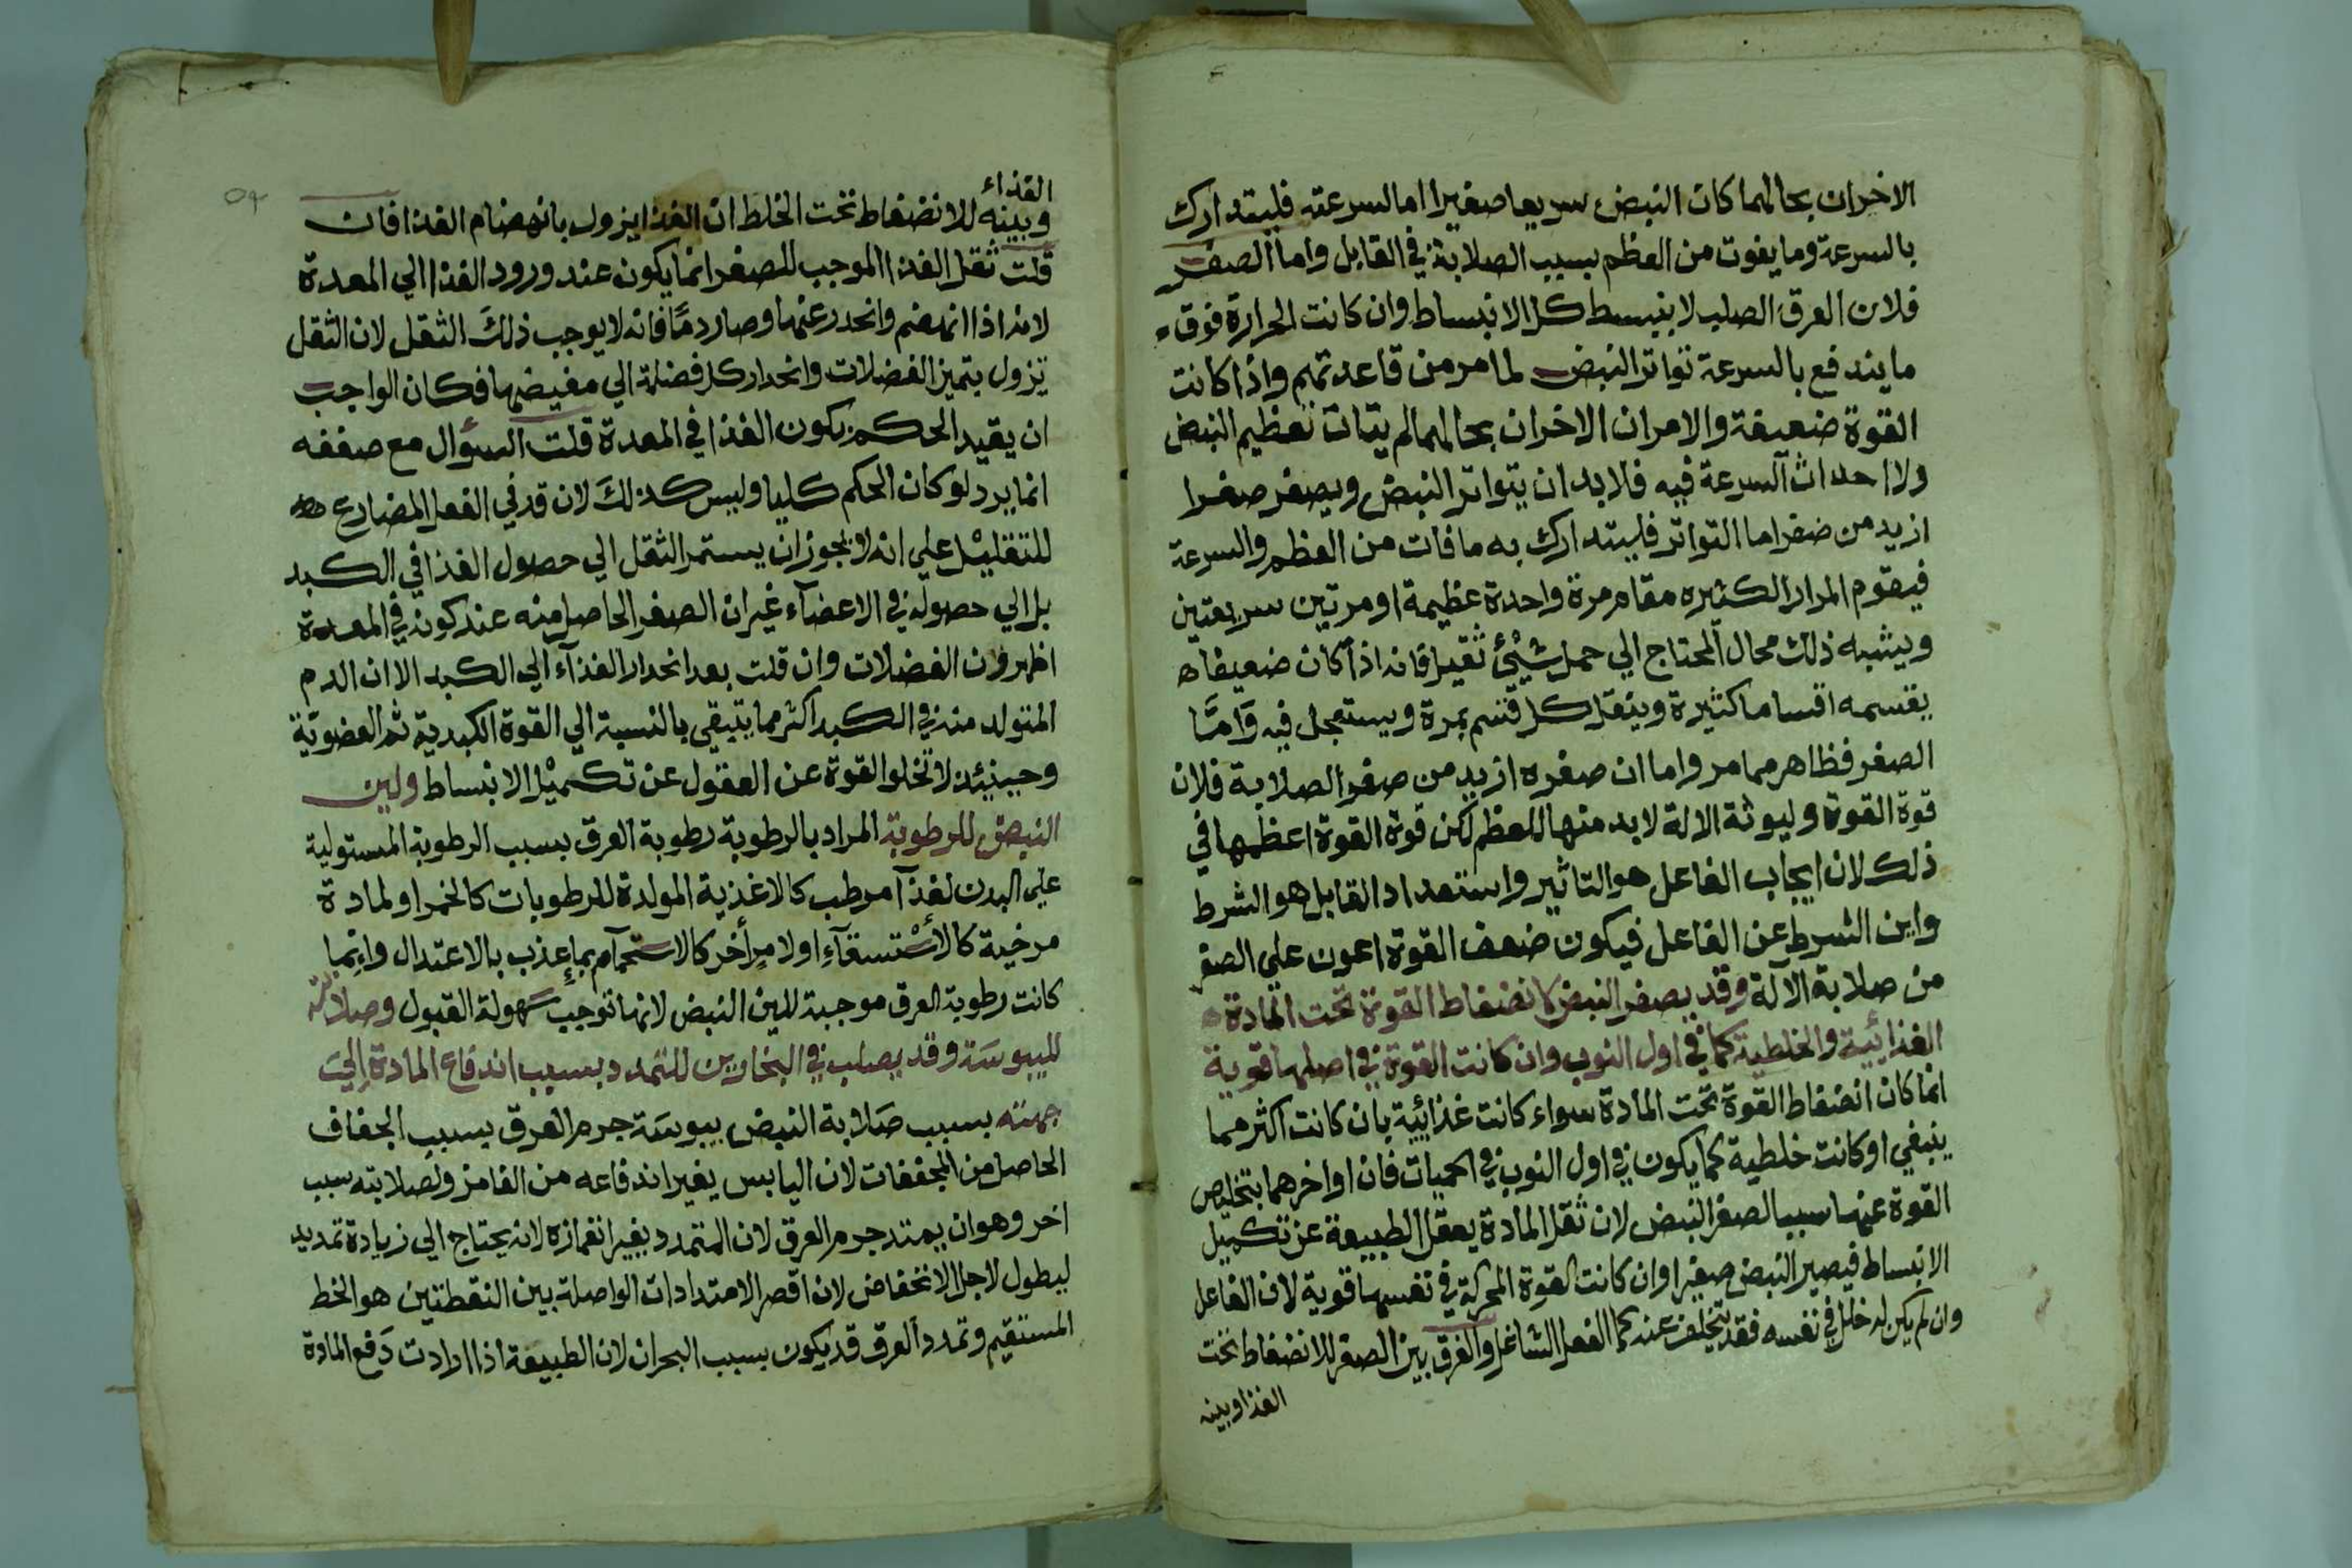 الاخران بحالهما كان النبض سريعا صغيرا اما السرعته فليتدارك
بالسرعة وما يفوت من العظم بسبب الصلابة في القابل واما الصغر
فلان العرق الصلب لا ينبسط كل الانبساط وان كانت الحرارة فوق
ما يندفع بالسرعة تواتر النبض لما مر من قاعدتهم واذا كانت
القوة ضعيفة والامران الاخران بحالهما لم يتات تعظيم النبض
ولا احداث السرعة فيه فلا بد ان يتواتر النبض ويصغر صغرا
ازيد من صغر اما التواتر فليتدارك به ما فات من العظم والسرعة
فيقوم المرار الكثيره مقام مرة واحدة عظيمة او مرتين سريعتين
ويشبه ذلك محال المحتاج الي حمل شيئ ثقيل فانه اذا كان ضعيفا
يقسمه اقساما كثيرة وينقل كل قسم بمرة ويستعجل فيه وامّا
الصغر فظاهر مما مر واما ان صغره ازيد من صغر الصلابة فلان
قوة القوة وليوثة الالة لا بد منها للعظم لكن قوة القوة اعظمها في
ذلك لان ايجاب الفاعل هو التاثير واستعداد القابل هو الشرط
واين الشرط عن الفاعل فيكون ضعف القوة اعون علي الصغر
من صلابة الآلة وقد يصغر النبض لانضغاط القوة تحت المادة
الغذائية والخلطية كما في اول النوب وان كانت القوة في اصلها قوية
انما كان انضغاط القوة تحت المادة سواء كانت غذائية بان كانت اكثر مما
ينبغي او كانت خلطية كما يكون في اول النوب في الحميات فان اواخرهما بتخليص
القوة عنها سببا لصغر النبض لان ثقل المادة يعقل الطبيعة عن تكميل
الانبساط فيصير النبض صغيرا وان كانت القوة المحركة في نفسها قوية لان الفاعل
وان لم يكن له خلل في نفسه فقد يتخلف عنه كما الفعل الشاغل والفرق بين الصغر للانضغاط تحت
الغذا وبينه
الغذاء
وبينه للانضغاط تحت الخلط ان الغذا يزول بانهضام الغذا فان
قلت ثقل الغذا الموجب للصغر انما يكون عند ورود الغذا الي المعدة
لانه اذا انهضم وانحدر عنها وصار دمًا فانه لا يوجب ذلك الثقل لان الثقل
تزول بتميز الفضلات وانحدار كل فضلة الي مغيضها فكان الواجب
ان يقيد الحكم بكون الغذا في المعدة قلت السؤال مع ضعفه
انما يرد لو كان الحكم كليا وليس كذلك لان قد في الفعل المضارع
للتقليل علي انه لا يجوز ان يستمر الثقل الي حصول الغذا في الكبد
بل الي حصوله في الاعضآء غير ان الصغر الحاصل منه عند كونه في المعدة
اظهر وان الفضلات وان قلت بعد انحدار الغذآء الي الكبد الا ان الدم
المتولد منه في الكبد اكثر مما يتبقي بالنسبة الي القوة الكبدية ثم العضوية
وحينئذ لا تخلو القوة عن العقول عن تكميل الانبساط ولين
النبض للرطوبة المراد بالرطوبة رطوبة العرق بسبب الرطوبة المستولية
علي البدن لغذآ مرطب كالاغذية المولدة للرطوبات كالخمر او لمادة
مرخية كالأستسقآءِ او لامرٍ أخر كالاستحمام بماءٍ عذب بالاعتدال وانما
كانت رطوبة العرق موجبة للين النبض لانها توجب سهولة القبول وصلابته
لليبوسة وقد يصلب في البخارين للتمدد بسبب اندفاع المادة الي
جهته بسبب صلابة النبض يبوسة جرم العرق بسبب الجفاف
الحاصل من المجففات لان اليابس يغير اندفاعه من الغامز ولصلابته سبب
اخر وهو ان يمتد جرم العرق لان المتمدد يغير انغمازه لانه يحتاج الي زيادة تمديد
ليطول لاجل الانخفاض لان اقصر الامتدادات الواصلة بين النقطتين هو الخط
المستقيم وتمدد العرق قد يكون بسبب البحران لان الطبيعة اذا ارادت دفع المادة